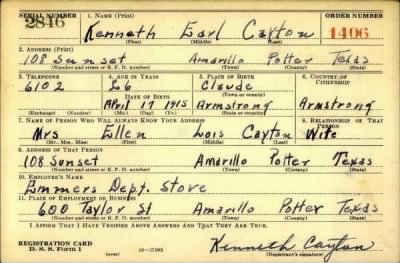 SERIAL NUMBER 1. NAME (Print) ORDER NUMBER
2846 Kenneth Earl Cayton 1406
(First) (Middle) (Last)
2. ADDRESS (Print)
108 Sunset Amarillo Potter Texas
(Number and street or R. F. D. number) (Town) (County) (State)
3. TELEPHONE 4. AGE IN YEARS 5. PLACE OF BIRTH 6. COUNTRY OF CITIZENSHIP
6102 26 Claude
DATE OF BIRTH (Town or county)
April 17 1915 Armstrong Armstrong
(Exchange) (Number) (Mo.) (Day) (Yr.) (State or country)
7. NAME OF PERSON WHO WILL ALWAYS KNOW YOUR ADDRESS 8. RELATIONSHIP OF THAT PERSON
Mrs Ellen Lois Cayton Wife
(Mr., Mrs., Miss) (First) (Middle) (Last)
9. ADDRESS OF THAT PERSON
108 Sunset Amarillo Potter Texas
(Number and street or R. F. D. number) (Town) (County) (State)
10. EMPLOYER'S NAME
Emmers Dept. Store
11. PLACE OF EMPLOYMENT OR BUSINESS
600 Taylor St Amarillo Potter Texas
(Number and street or R. F. D. number) (Town) (County) (State)
I AFFIRM THAT I HAVE VERIFIED ABOVE ANSWERS AND THAT THEY ARE TRUE.
REGISTRATION CARD
D. S. S. Form 1 (over) Kenneth Cayton
(Registrant's signature)